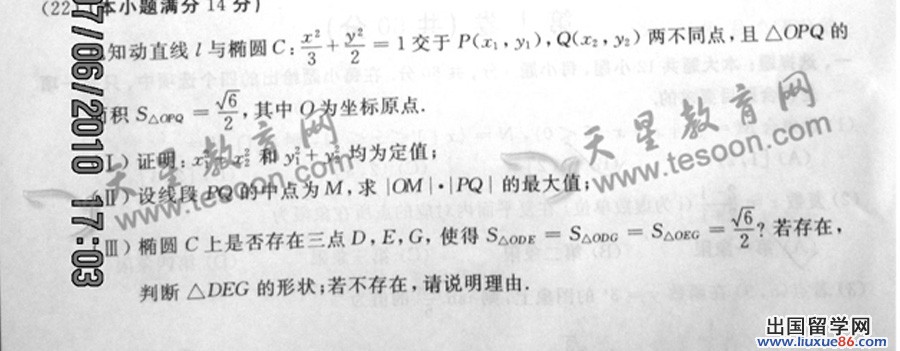 (22 本小题满分14分)
知动直线 l 与椭圆 C: x²/3 + y²/2 = 1 交于 P(x₁, y₁), Q(x₂, y₂) 两不同点, 且 △OPQ 的
面积 S△OPQ = √6/2, 其中 O 为坐标原点.
(Ⅰ) 证明: x₁² + x₂² 和 y₁² + y₂² 均为定值;
(Ⅱ) 设线段 PQ 的中点为 M, 求 |OM|·|PQ| 的最大值;
(Ⅲ) 椭圆 C 上是否存在三点 D, E, G, 使得 S△ODE = S△ODG = S△OEG = √6/2? 若存在,
判断 △DEG 的形状; 若不存在, 请说明理由.
7/06/2010 17:03
天星教育网
www.tesoon.com
天星教育网
www.tesoon.com
出国留学网
www.liuxue86.com